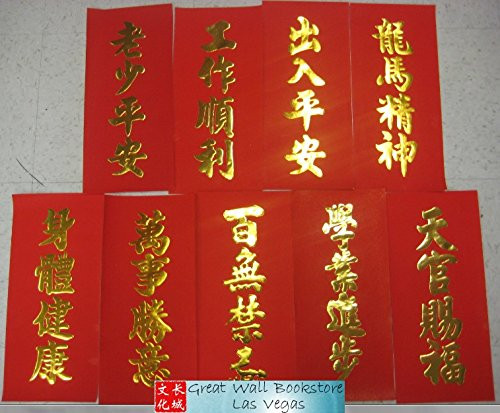 老少平安
工作順利
出入平安
龍馬精神
身體健康
萬事勝意
百無禁忌
學業進步
天官賜福
文化
長城
Great Wall Bookstore
Las Vegas